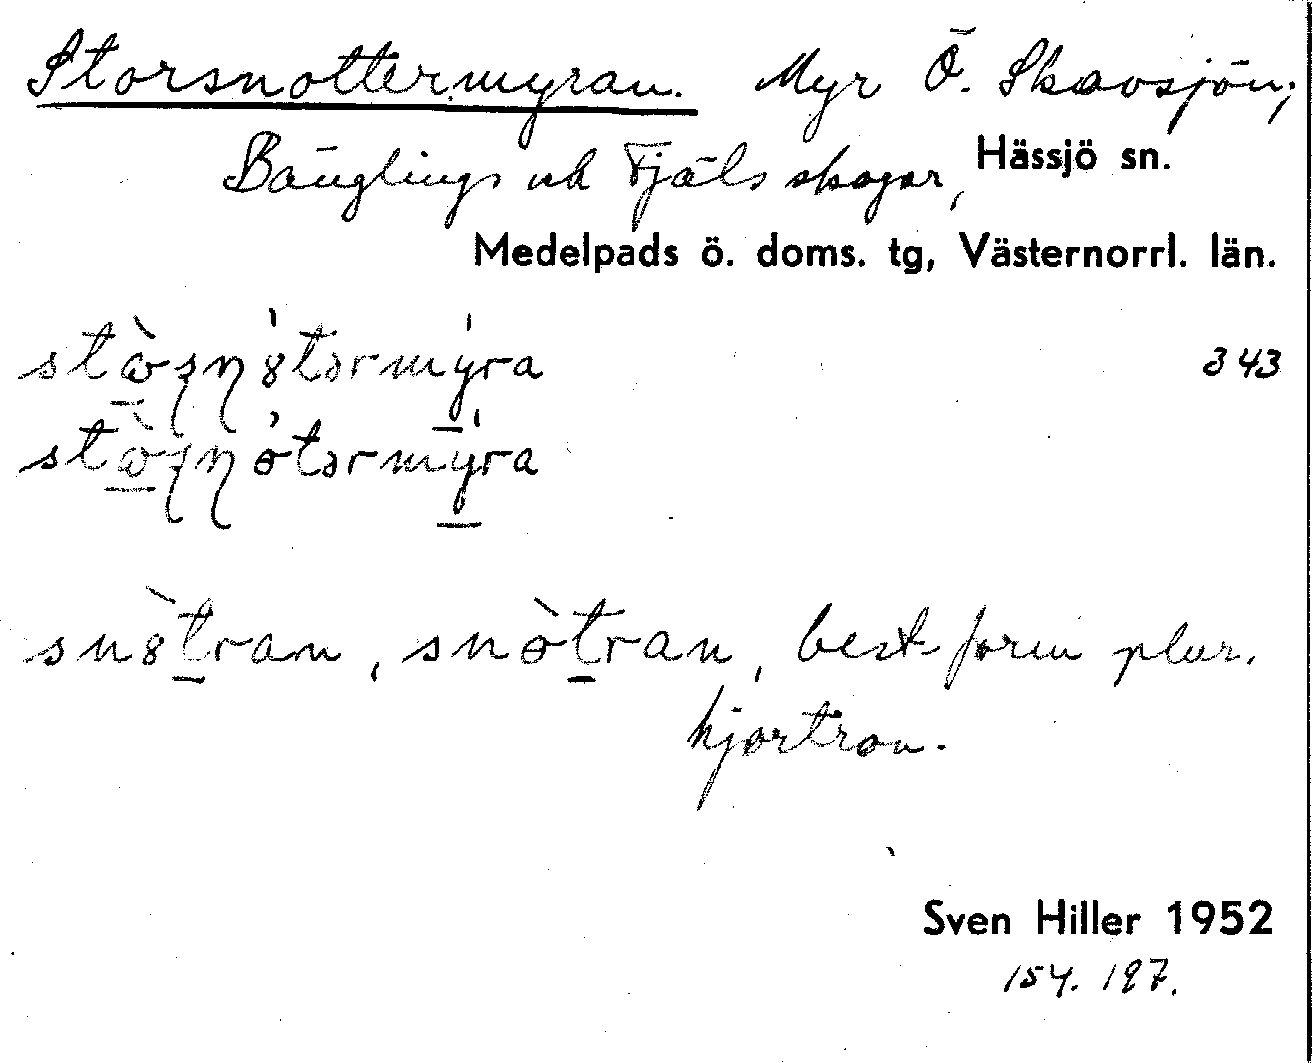 Storsnottermyran. Myr Ö. Skavsjön;
Bänglings och Fjäls skogar, Hässjö sn.
Medelpads ö. doms. tg, Västernorrl. län.
343
snȣ̀tran, snòtran, best. form plur.
hjortron.
Sven Hiller 1952
154. 197.